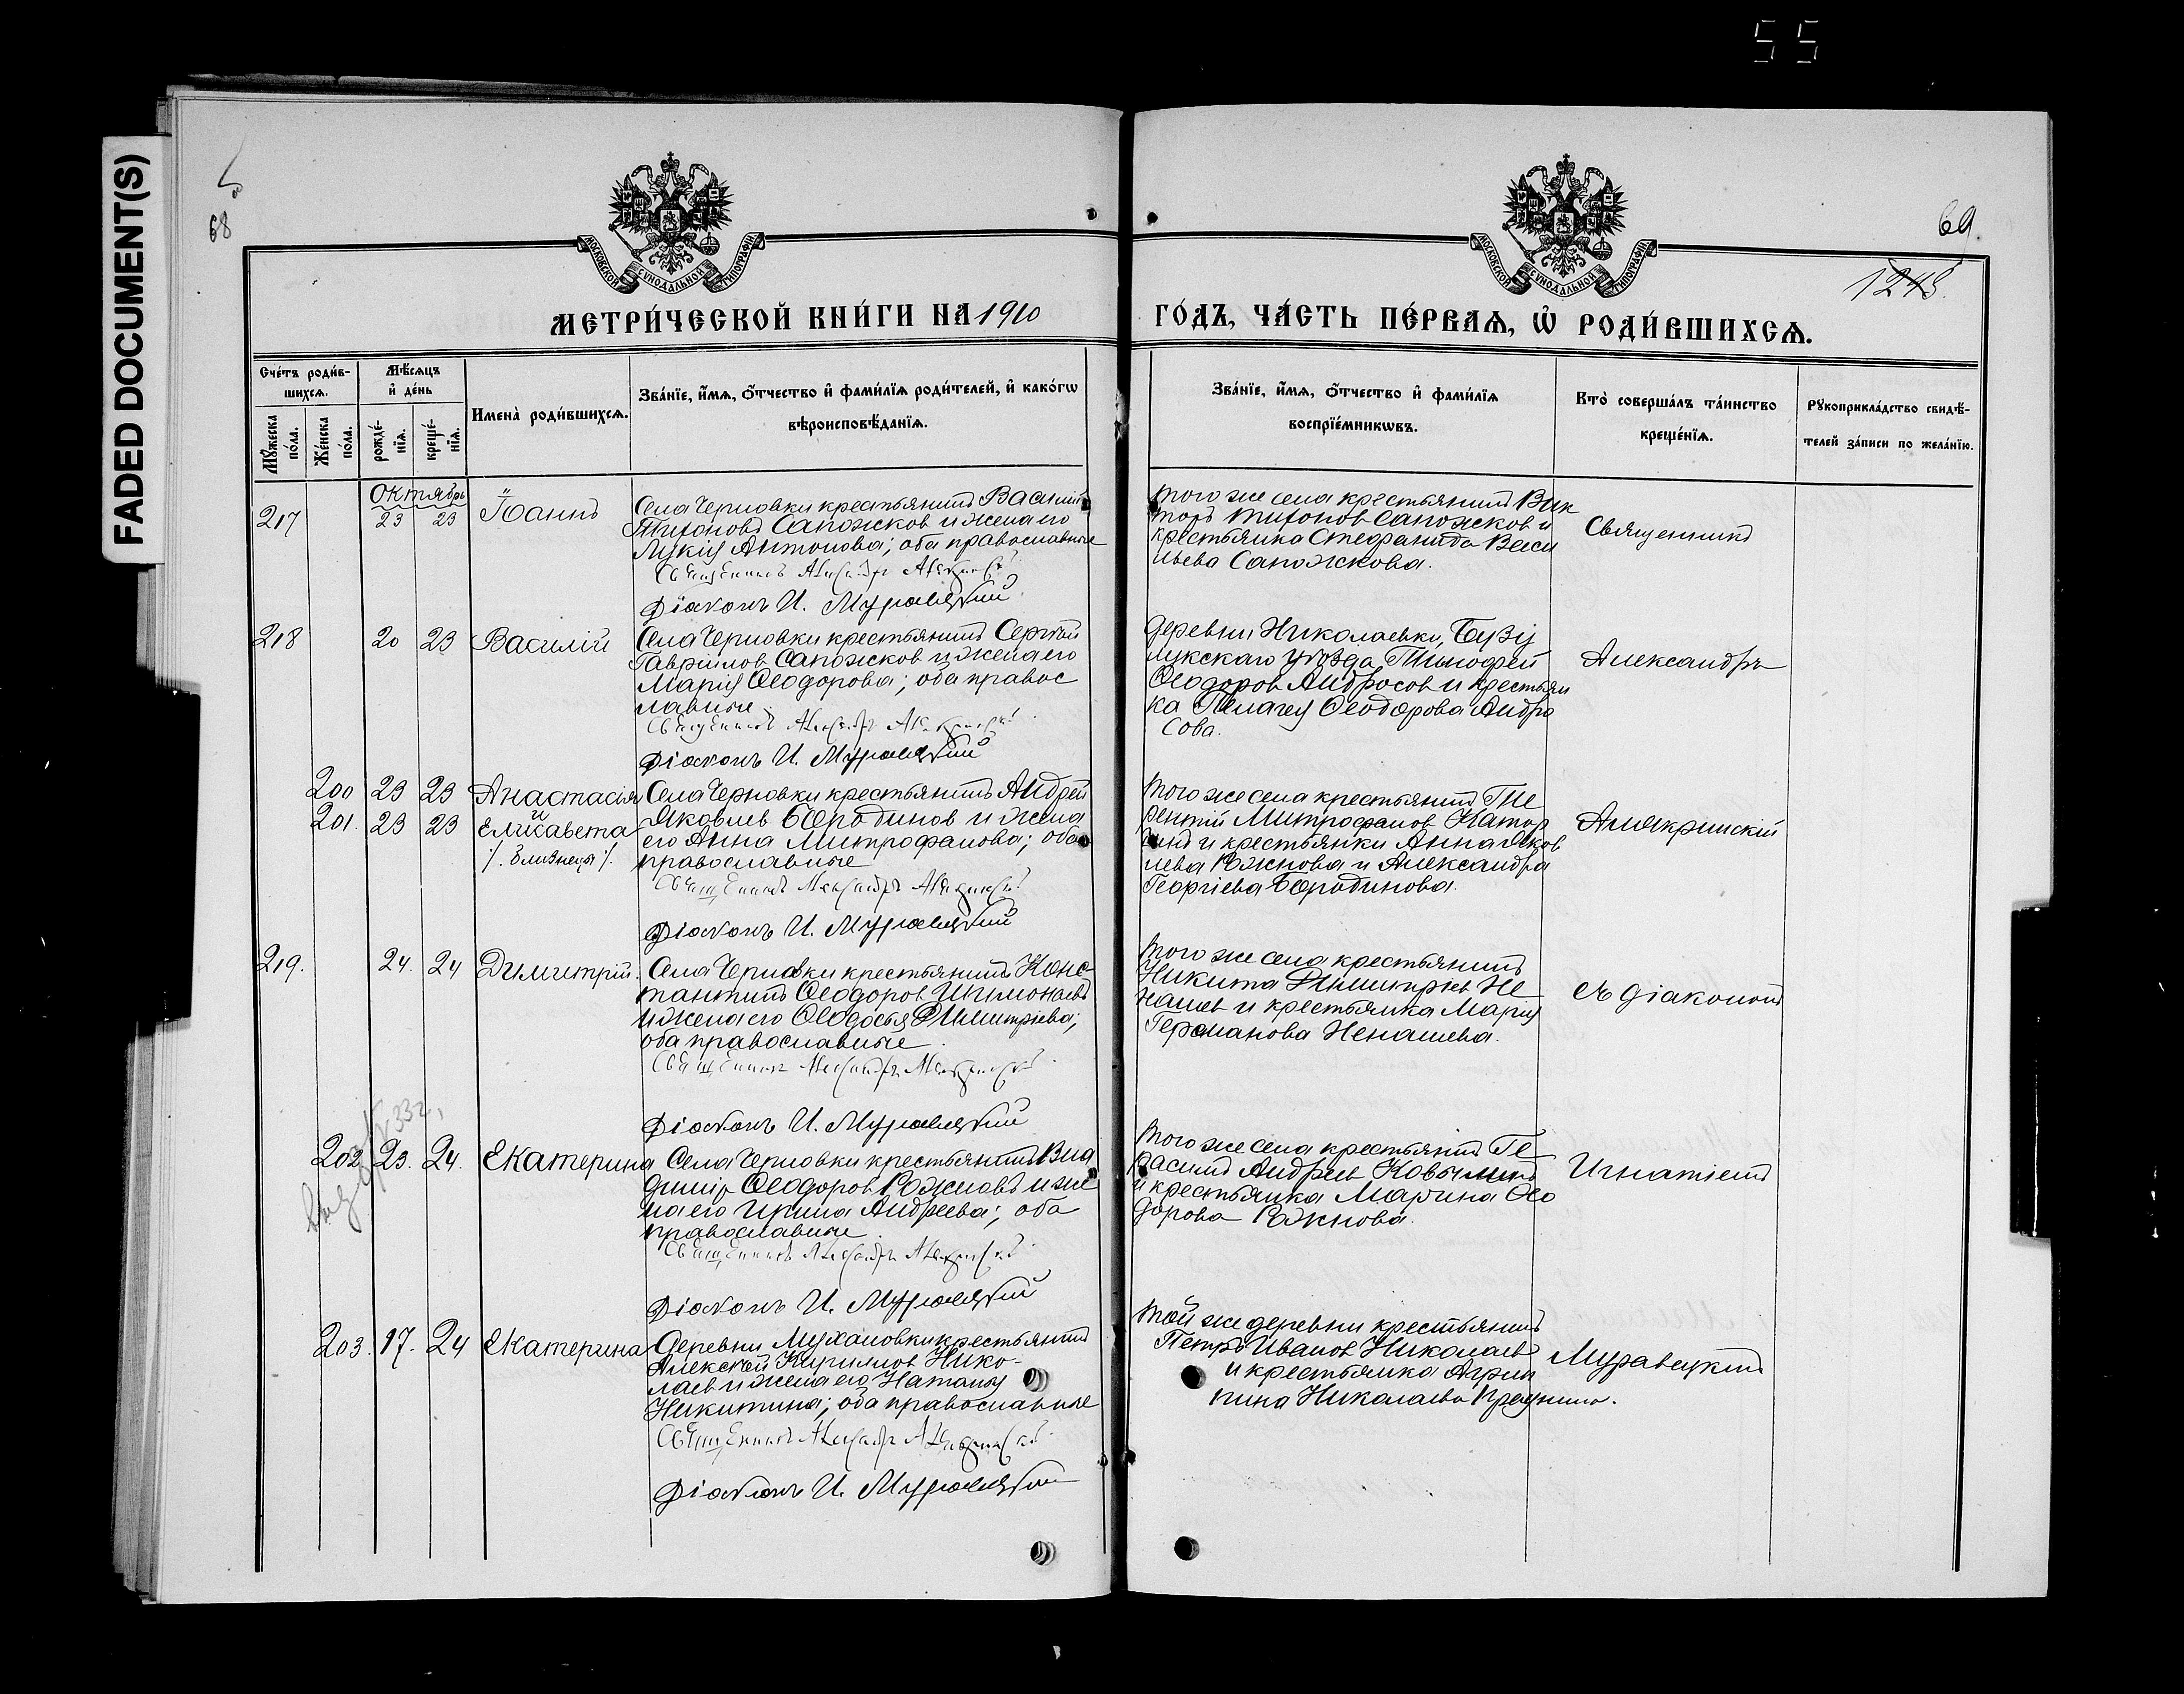 55
FADED DOCUMENT(S)
68
69
1248.
МОСКОВСКОЙ СѴНОДАЛЬНОЙ ТИПОГРАФІИ
МОСКОВСКОЙ СѴНОДАЛЬНОЙ ТИПОГРАФІИ
МЕТРИ́ЧЕСКОЙ КНИ́ГИ НА 1910
ГО́ДЪ, ЧА́СТЬ ПЕ́РВАѦ, Ѽ РОДИ́ВШИХСѦ.
Сче́тъ роди́в-
шихсѧ.
Мꙋ́жеска
по́ла.
Же́нска
по́ла.
Мѣ́сѧцъ
и҆ де́нь
рожде́-
нїѧ.
креще́-
нїѧ.
Имена̀ роди́вшихсѧ.
Зва́нїе, и҆́мѧ, ѻ҆́тчество и҆ фами́лїѧ роди́телей, и҆ како́гѡ
вѣроисповѣ́данїѧ.
Зва́нїе, и҆́мѧ, ѻ҆́тчество и҆ фами́лїѧ
воспрїе́мникѡвъ.
Кто̀ соверша́лъ та́инство
креще́нїѧ.
Рꙋкоприкла́дство свидѣ́-
телей за́писи по жела́нїю.
Октябрь
217
23 23
Іоаннъ
Села Черновки крестьянинъ Василій
Тихоновъ Сапожков и жена его
Лукія Антонова; оба православные
Священникъ Александръ Алякринскій
Діаконъ И. Муравецкій
того же села крестьянинъ Вик
торъ Тихонов Сапожков и
крестьянка Стефанида Васи
льева Сапожкова.
Священникъ
218
20 23
Василій
Села Черновки крестьянинъ Сергѣй
Гавріилов Сапожков и жена его
Марія Ѳеодорова; оба правос
лавные
Священникъ Александръ Алякринскій
Діаконъ И. Муравецкій
деревни Николаевки, Бузу
лукскаго уѣзда Тимофей
Ѳеодоров Андросов и крестьян
ка Пелагея Ѳеодорова Андро
сова.
Александръ
200 23 23 Анастасія
и
201. 23 23 Елисавета
/. близнецы /.
Села Черновки крестьянинъ Андрей
Яковлев Бородинов и жена
его Анна Митрофанова; оба
православные
Священникъ Александръ Алякринскій
Діаконъ И. Муравецкій
того же села крестьянинъ Те
рентій Митрофанов
и крестьянки Анна Яков
лева Рожнова и Александра
Георгіева Бородинова.
Алякринскій
219. 24. 24 Димитрій.
Села Черновки крестьянинъ Конс-
тантинъ Ѳеодоров
и жена его Ѳеодосья Димитріева;
оба православные
Священникъ Александръ Алякринскій
Діаконъ И. Муравецкій
того же села крестьянинъ
Никита Димитріев Не
нашев и крестьянка Марія
Германова Ненашева.
съ діакономъ
33 г.,
202 23. 24. Екатерина
Села Черновки крестьянинъ Вла
диміръ Ѳеодоров Рожновъ и же
на его Ирина Андреева; оба
православные
Священникъ Александръ Алякринскій
Діаконъ И. Муравецкій
того же села крестьянинъ Ге
расимъ Андреев
и крестьянка Марина Ѳео
дорова Рожнова.
Игнатіемъ
203. 17. 24 Екатерина
Деревни Мухановки крестьянинъ
Алексѣй Кириллов Нико-
лаев и жена его Наталья
Никитина; оба православные
Священникъ Александръ Алякринскій
Діаконъ И. Муравецкій
той же деревни крестьянинъ
Петръ Иванов Николаев
и крестьянка Агрип
пина Николаева
Муравецкимъ